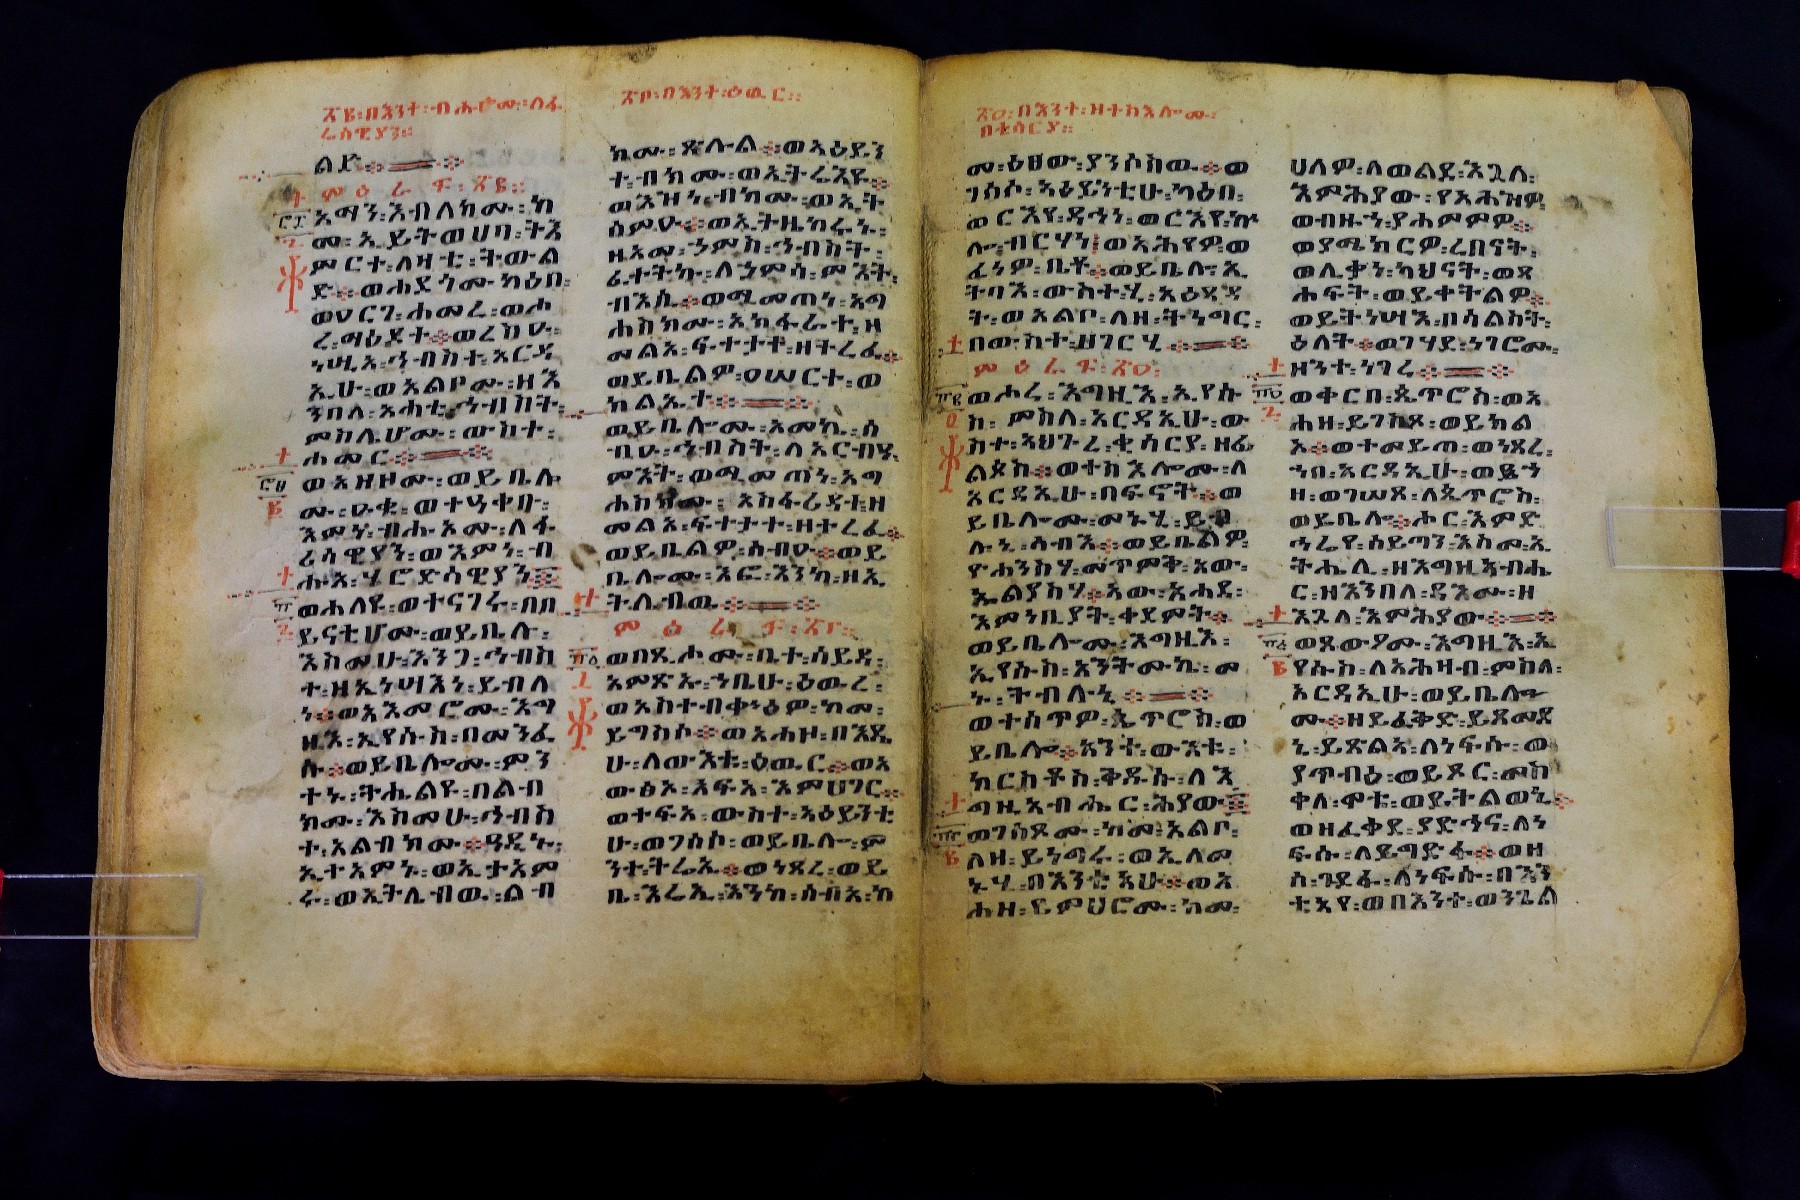 ፳፪፡በእንተ፡ብሒዖሙ፡ለፈ
ሪሳዊያን።
ልድ፨
ምዕራፍ፡፳፪።
አማን፡እብለክሙ፡ከ
መ፡ኢይትወሀባ፡ትእ
ምርተ፡ለዛቲ፡ትውል
ድ፨ወሐደጎሙ፡ካዕበ፡
ወዐርገ፡ሐመረ፡ወሖ
ረ፡ማዕዶተ፨ወረስዑ፡
ነሢአ፡ኅብስተ፡አርዳ
ኢሁ፡ወአልቦሙ፡ዘእ
ንበለ፡አሐቲ፡ኅብስት፡
ምስሌሆሙ፡ውስተ፡
ሐመር፨
ወአዘዞሙ፡ወይቤሎ
ሙ፡ዑቁ፡ወተዓቀቡ፡
እምነ፡ብሑአሙ፡ለፋ
ሪሳዊያን፡ወእምነ፡ብ
ሑአ፡ሄሮድሳዊያን፨
ወሐለዩ፡ወተናገሩ፡በበ
ይናቲሆሙ፡ወይቤሉ፡
እስመሁ፡እንጋ፡ኅብስ
ተ፡ዘኢነሣእነ፡ይብለ
ነ፨ወአእመሮሙ፡እግ
ዚእ፡ኢየሱስ፡በመንፈ
ሱ፨ወይቤሎሙ፡ምን
ተኑ፡ትሔልዩ፡በልብ
ክሙ፡እስመሁ፡ኅብስ
ተ፡አልብክሙ፨ዓዲኑ፡
ኢተአምኑ፡ወኢታአም
ሩ፡ወኢትሌብዉ፡ልብ
፳፫፡በእንተ፡ዕዉር።
ክሙ፡ጽሉል፨ወአዕይን
ተ፡ብክሙ፡ወኢትሬእዩ፨
ወእዝነ፡ብክሙ፡ወኢት
ሰምዑ፨ወኢትዜከሩኑ፡
ዘአመ፡ኃምስ፡ኅብስት፡
ፈተትኩ፡ለኃምሳ፡ምእት፡
ብእሲ፨ወሚመጠነ፡አግ
ሐስክሙ፡አክፋራተ፡ዘ
መልአ፡ፍተታተ፡ዘተረፈ፨
ወይቤልዎ፡፲ወ፪ተ፡ወ
ክልኤተ፨
ወይቤሎሙ፡አመኒ፡ሰ
ብዑ፡ኅብስት፡ለአርብዓ፡
ምእት፡ወሚመጠነ፡አግ
ሐስክሙ፡አስፋሪዳተ፡ዘ
መልአ፡ፍተታተ፡ዘተረፈ፨
ወይቤልዎ፡ሰብዑ፨ወይ
ቤሎሙ፡እፎ፡እንከ፡ዘኢ
ትሌብዉ፨
ምዕራፍ፡፳፫።
ወበጺሖሙ፡ቤተ፡ሳይዳ፡
አምጽኡ፡ኀቤሁ፡ዕዉረ፡
ወአስተብቀነዕዎ፡ከመ፡
ይግስሶ፨ወአሐዞ፡በእዴ
ሁ፡ለውእቱ፡ዕዉር፨ወአ
ውፅአ፡አፍአ፡እምሀገር፨
ወተፍአ፡ውስተ፡አዕይንቲ
ሁ፡ወገሰሶ፡ወይቤሎ፡ም
ንተ፡ትሬኢ፨ወነጸረ፡ወይ
ቤ፡እሬኢ፡እንከ፡ሰብአ፡ከ
፳፬፡በእንተ፡ዘተስእሎሙ፡
በቂሳርያ።
መ፡ዕፀው፡ያንሶስዉ፨ወ
ገሰሶ፡አዕይንቲሁ፡ካዕበ፡
ወርእየ፡ዳኅነ፡ወርእየ፡ኵ
ሎ፡ብርሃነ፡ወአሕየዎ፡ወ
ፈነዎ፡ቤቶ፨ወይቤሎ፡ኢ
ትባእ፡ውስተ፡ሃ፡አዕዳዳ
ት፡ወአልቦ፡ለዘ፡ትነግር፡
በውስተ፡ሀገር፡ሃ፨
ምዕራፍ፡፳፬፡
ወሖረ፡እግዚእ፡ኢየሱ
ስ፡ምስለ፡አርዳኢሁ፡ው
ስተ፡አህጉረ፡ቂሳርያ፡ዘፊ
ልጶስ፨ወተስእሎሙ፡ለ
አርዳኢሁ፡በፍኖት፨ወ
ይቤሎሙ፡መኑሃ፡ይብ
ሉኒ፡ሰብእ፨ወይቤልዎ፡
ዮሐንስሃ፡መጥምቀ፡አው፡
ኤልያስሃ፨አው፡አሐደ፡
እምነቢያት፡ቀደምት፨
ወይቤሎሙ፡እግዚእ፡
ኢየሱስ፡አንትሙኬ፡መ
ኑ፡ትብሉኒ፨
ወተሰጥዎ፡ጴጥሮስ፡ወ
ይቤሎ፨አንተ፡ውእቱ፡
ክርስቶስ፡ቅዱሱ፡ለእ
ግዚአብሔር፡ሕያው፨
ወገሠጾሙ፡ከመ፡አልቦ፡
ለዘ፡ይነግሩ፡ወኢለመ
ኑሂ፡በእንቲአሁ፨ወአ
ሐዘ፡ይምህሮሙ፡ከመ፡
ሀለዎ፡ለወልደ፡እጓለ፡
እምሕያው፡የአሕዝዎ፡
ወብዙኀ፡ያሐምምዎ፨
ወያሜክርዎ፡ረበናት፡
ወሊቃነ፡ካህናት፡ወጸ
ሐፍት፡ወይቀትልዎ፨
ወይትነሣእ፡በሳልስት፡
ዕለት፨ወገሃደ፡ነገሮሙ፡
ዘንተ፡ነገረ፨
ወቀርበ፡ጴጥሮስ፡ወአ
ሐዘ፡ይገሥጾ፡ወይክል
አ፨ወተመይጠ፡ወነጸረ፡
ኀበ፡አርዳኢሁ፡ወይኄ
ዘ፡ወገሠጾ፡ለጴጥሮስ፡
ወይቤሎ፨ሑር፡እምድ
ኅሬየ፡ሰይጣን፡እስመ፡ኢ
ትሔሊ፡ዘእግዚአብሔ
ር፡ዘእንበለ፡ዳእሙ፡ዘ
እጓለ፡እምሕያው፨
ወጸውዖሙ፡እግዚእ፡ኢ
የሱስ፡ለአሕዛብ፡ምስለ፡
አርዳኢሁ፡ወይቤሎ
ሙ፨ዘይፈቅድ፡ይጸመደ
ኒ፡ይጽልኣ፡ለነፍሱ፡ወ
ያጥብዕ፡ወይጾር፡መስ
ቀለ፡ሞቱ፡ወይትልወኒ፨
ወዘፈቀደ፡ያድኅና፡ለነ
ፍሱ፡ለይግድፋ፨ወዘ
ሰ፡ገደፋ፡ለነፍሱ፡በእን
ቲአየ፡ወበእንተ፡ወንጌል